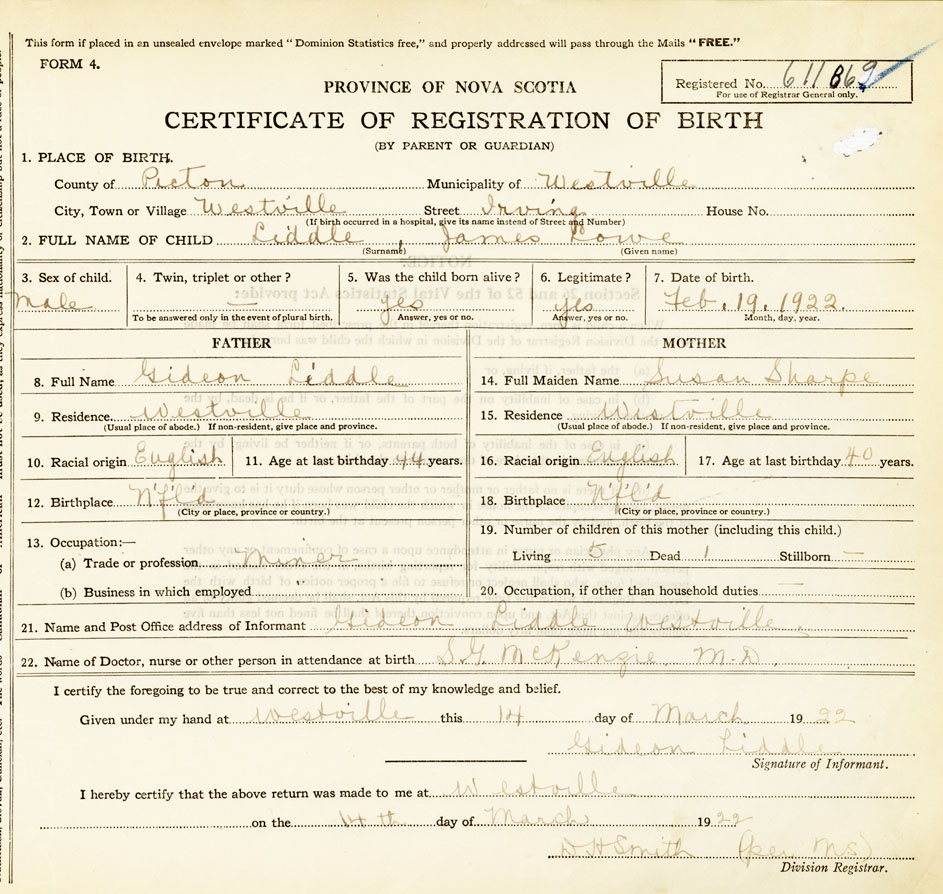 This form if placed in an unsealed envelope marked "Dominion Statistics free," and properly addressed will pass through the Mails "FREE."
FORM 4.
Registered No. 611869
For use of Registrar General only.
PROVINCE OF NOVA SCOTIA
CERTIFICATE OF REGISTRATION OF BIRTH
(BY PARENT OR GUARDIAN)
1. PLACE OF BIRTH.
County of Picton Municipality of Westville
City, Town or Village Westville Street Irving House No.
(If birth occurred in a hospital, give its name instead of Street and Number)
2. FULL NAME OF CHILD Liddle, James Lowe
(Surname) (Given name)
3. Sex of child. 4. Twin, triplet or other? 5. Was the child born alive? 6. Legitimate? 7. Date of birth.
Male — yes yes Feb. 19. 1922.
To be answered only in the event of plural birth. Answer, yes or no. Answer, yes or no. Month, day, year.
FATHER MOTHER
8. Full Name Gideon Liddle 14. Full Maiden Name Susan Sharpe
9. Residence. Westville 15. Residence Westville
(Usual place of abode.) If non-resident, give place and province. (Usual place of abode.) If non-resident, give place and province.
10. Racial origin English 11. Age at last birthday 44 years. 16. Racial origin English 17. Age at last birthday 40 years.
12. Birthplace N'fl'd 18. Birthplace N'fl'd
(City or place, province or country.) (City or place, province or country.)
13. Occupation:— 19. Number of children of this mother (including this child.)
(a) Trade or profession Miner Living 5 Dead 1 Stillborn —
(b) Business in which employed " 20. Occupation, if other than household duties —
21. Name and Post Office address of Informant Gideon Liddle Westville
22. Name of Doctor, nurse or other person in attendance at birth S.G. McKenzie M.D.
I certify the foregoing to be true and correct to the best of my knowledge and belief.
Given under my hand at Westville this 14 day of March 1922
Gideon Liddle
Signature of Informant.
I hereby certify that the above return was made to me at Westville
on the 14th day of March 1922
D H Smith (per MS)
Division Registrar.